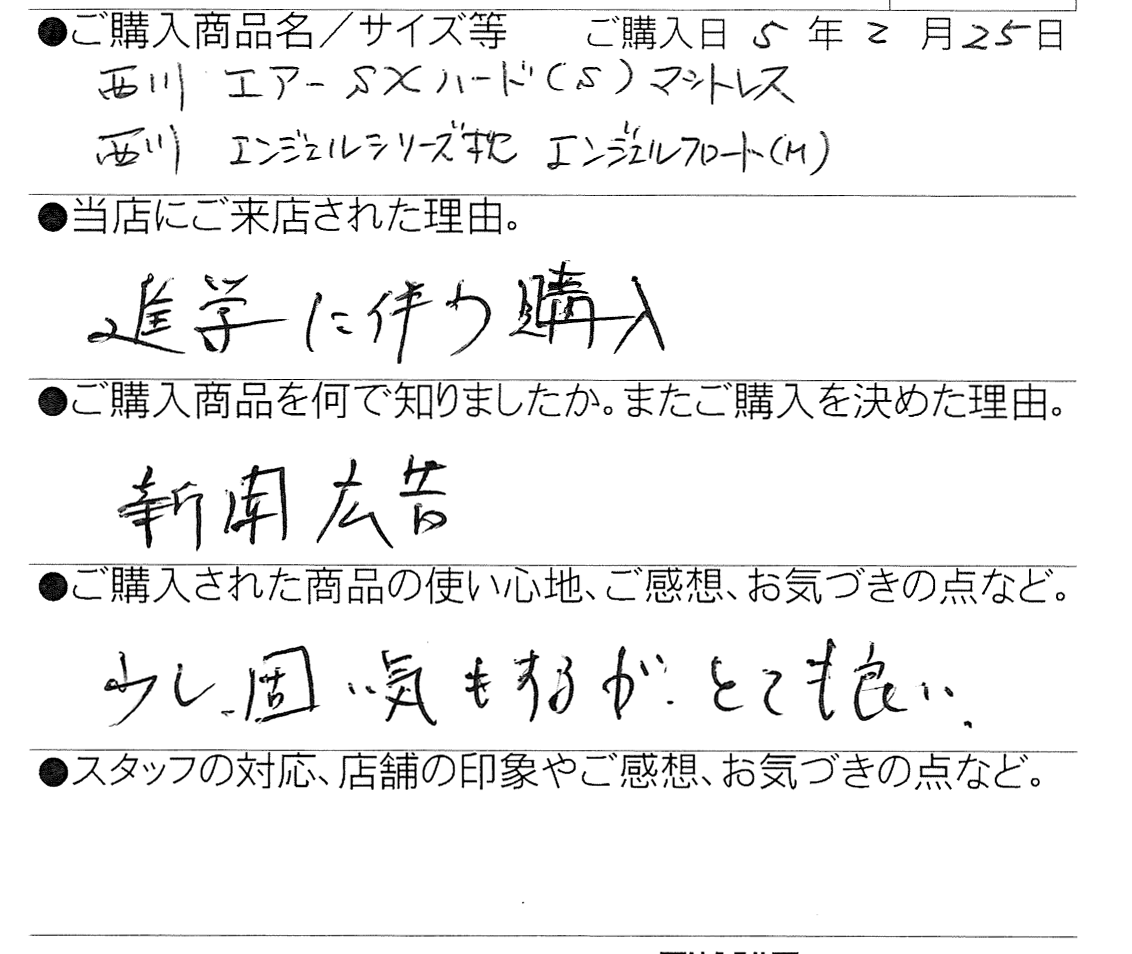 ●ご購入商品名／サイズ等 ご購入日 5 年 2 月 25 日
西川 エアーSXハード(S)マットレス
西川 エンジェルシリーズ枕 エンジェルフロート(M)
●当店にご来店された理由。
進学に伴う購入
●ご購入商品を何で知りましたか。またご購入を決めた理由。
新聞広告
●ご購入された商品の使い心地、ご感想、お気づきの点など。
少し固い気もするが、とても良い。
●スタッフの対応、店舗の印象やご感想、お気づきの点など。